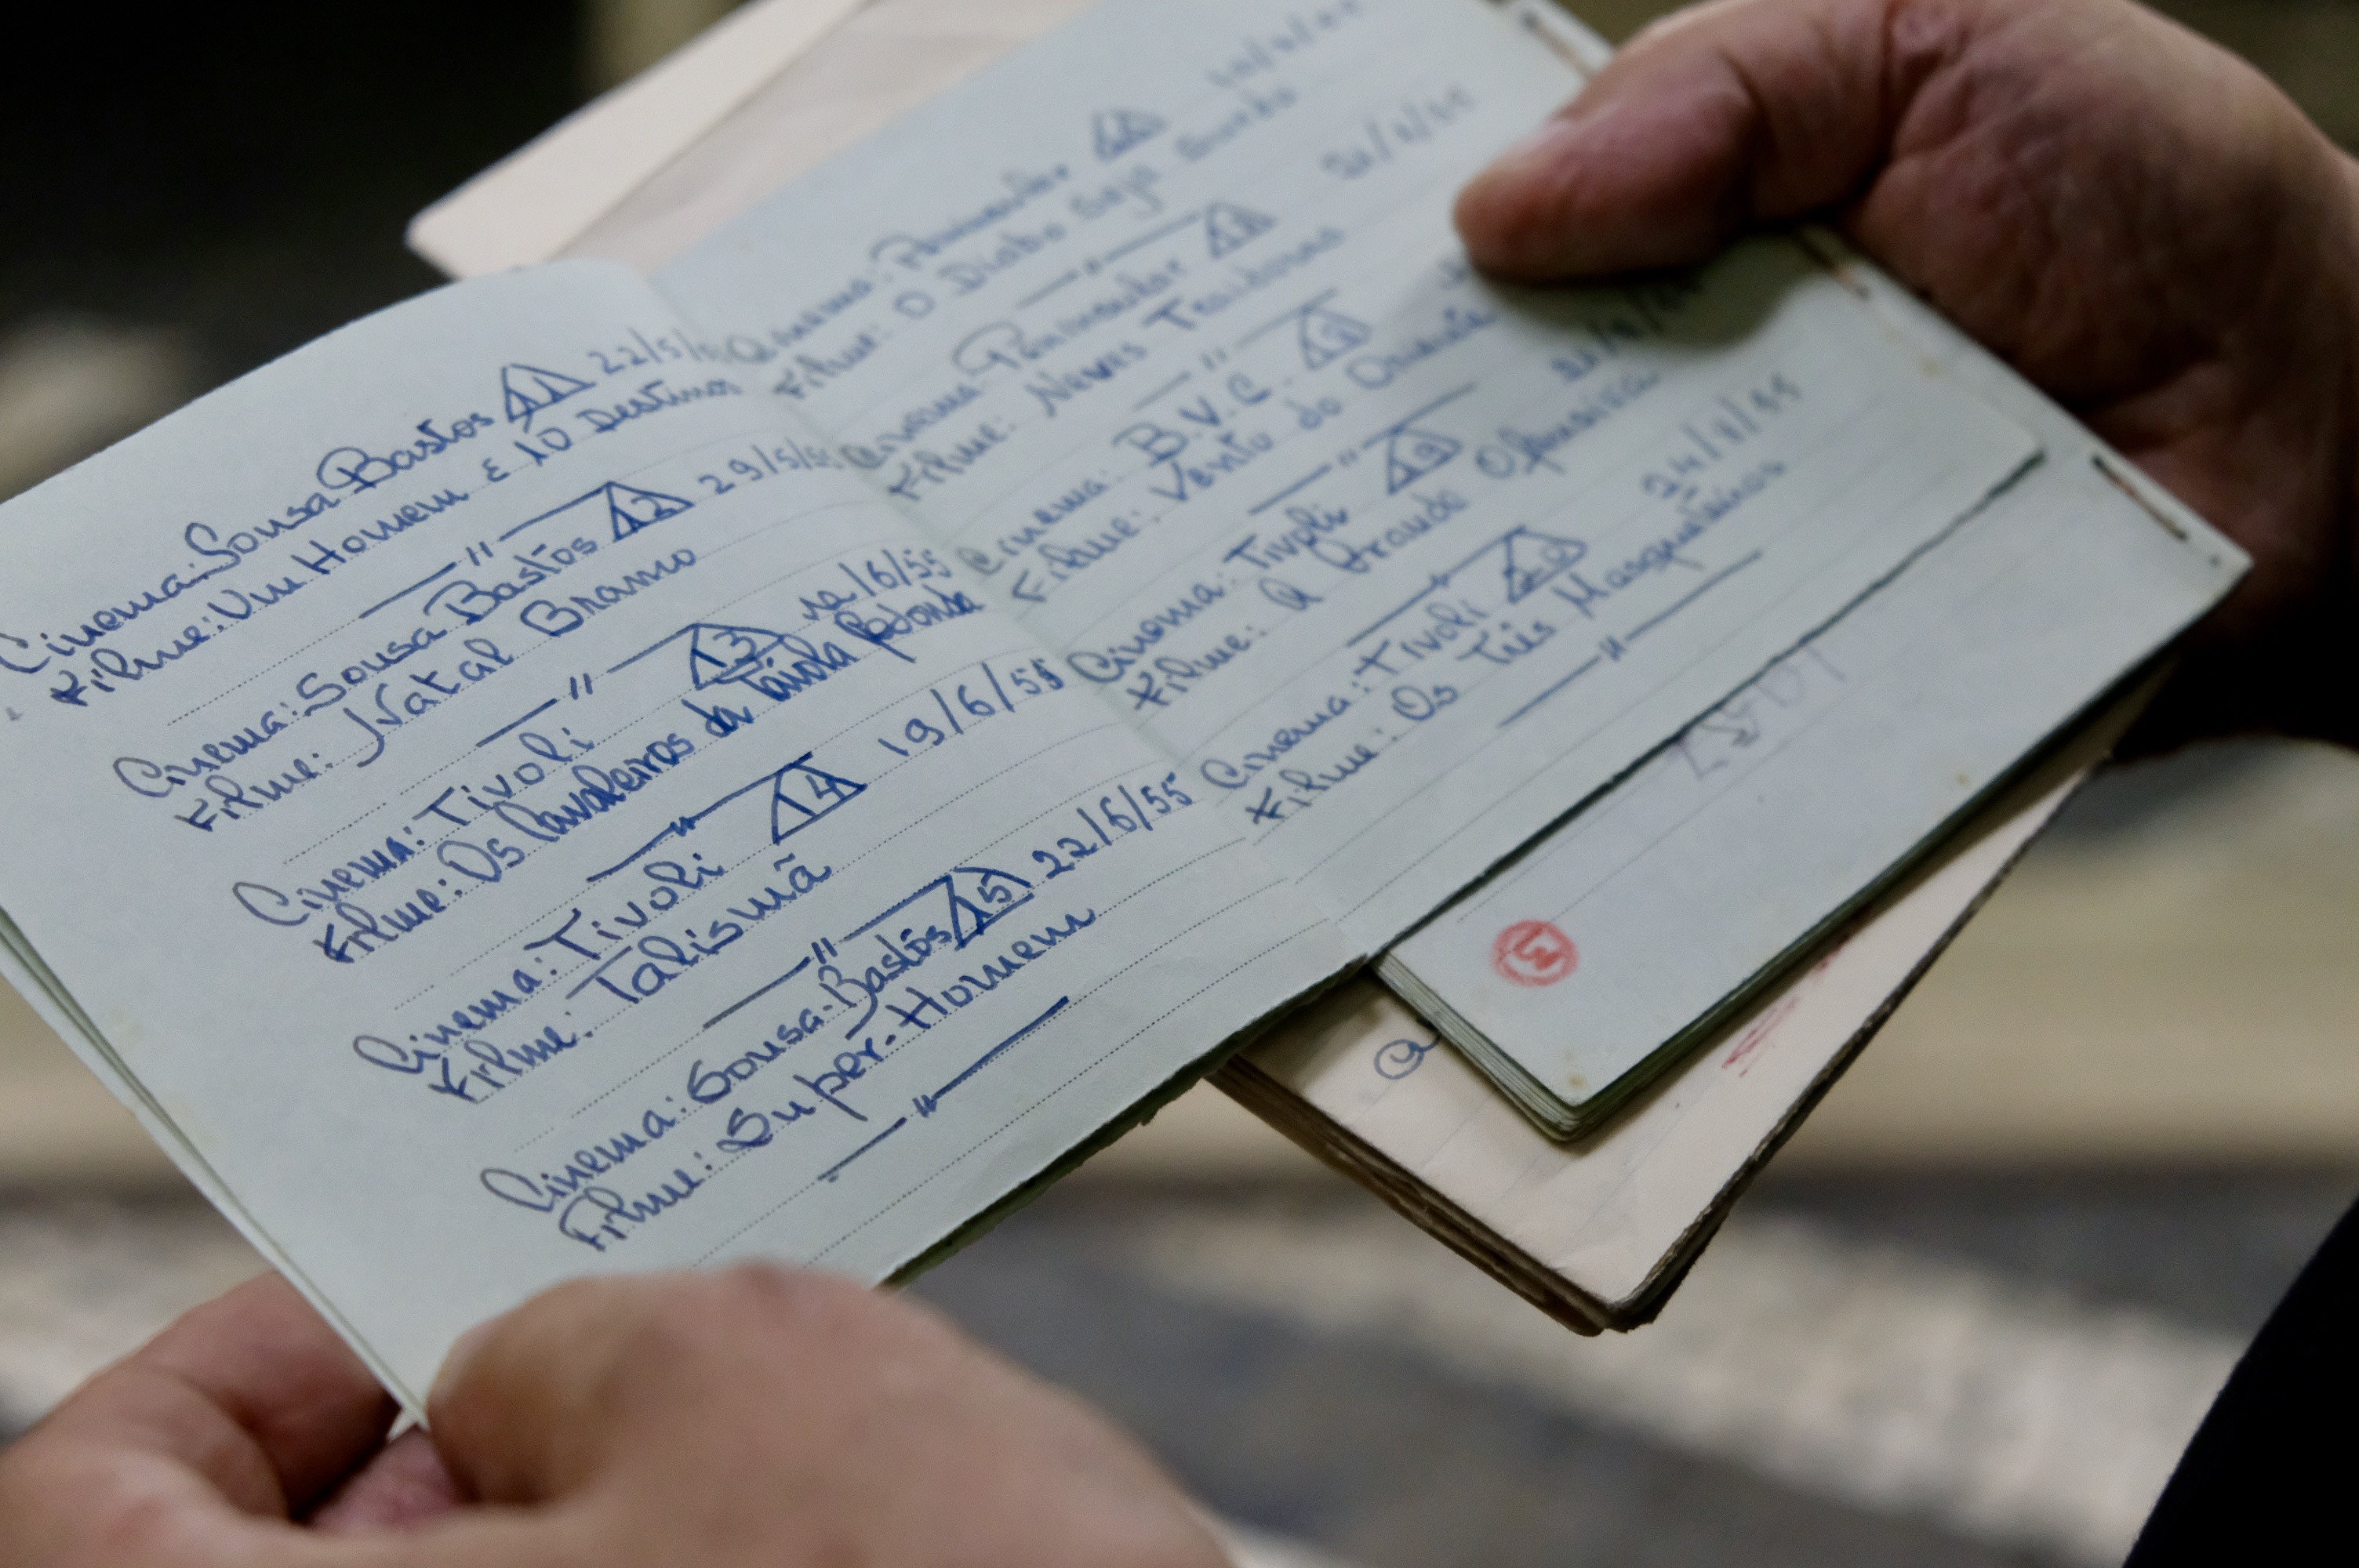 Cinema: Sousa Bastos 11 22/5/
Filme: Um Homem e 10 Destinos
— " —
Cinema: Sousa Bastos 12 29/5/55
Filme: Natal Branco
— " —
Cinema: Tivoli 13 12/6/55
Filme: Os Cavaleiros da Távola Redonda
— " —
Cinema: Tivoli 14 19/6/55
Filme: Talismã
— " —
Cinema: Sousa Bastos 15 22/6/55
Filme: Super-Homem
— " —
Cinema: Peninsular 16
Filme: O Diabo Seja Surdo
— " —
Cinema: Peninsular 17
Filme: Neves Traidoras
— " —
Cinema: B.V.C. 18
Filme: Vento do Oriente
— " —
Cinema: Tivoli 19
Filme: A Grande Ofensiva
— " —
Cinema: Tivoli 20 24/8/55
Filme: Os Três Mosqueteiros
— " —